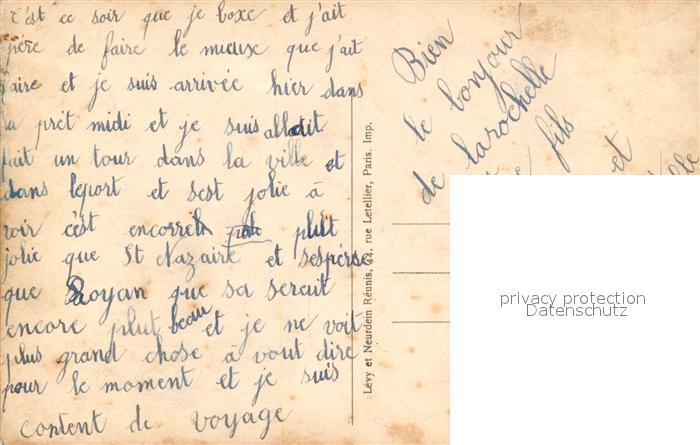 C'est ce soir que je boxe et j'ait
père de faire le mieux que j'ait
faire et je suis arrivée hier dans
la prét midi et je suis allait
fait un tour dans la ville et
dans leport et sest jolie à
voir c'ést encorre plùt
jolie que St Nazaire et j'espérse
que Royan que sa serait
encore plut beau et je ne voit
plus grand chose à vout dire
pour le moment et je suis
content de voyage
Bien
le bonjour
de larochelle
fils
et
Lévy et Neurdein Réunis, 44, rue Letellier, Paris. Imp.
privacy protection
Datenschutz